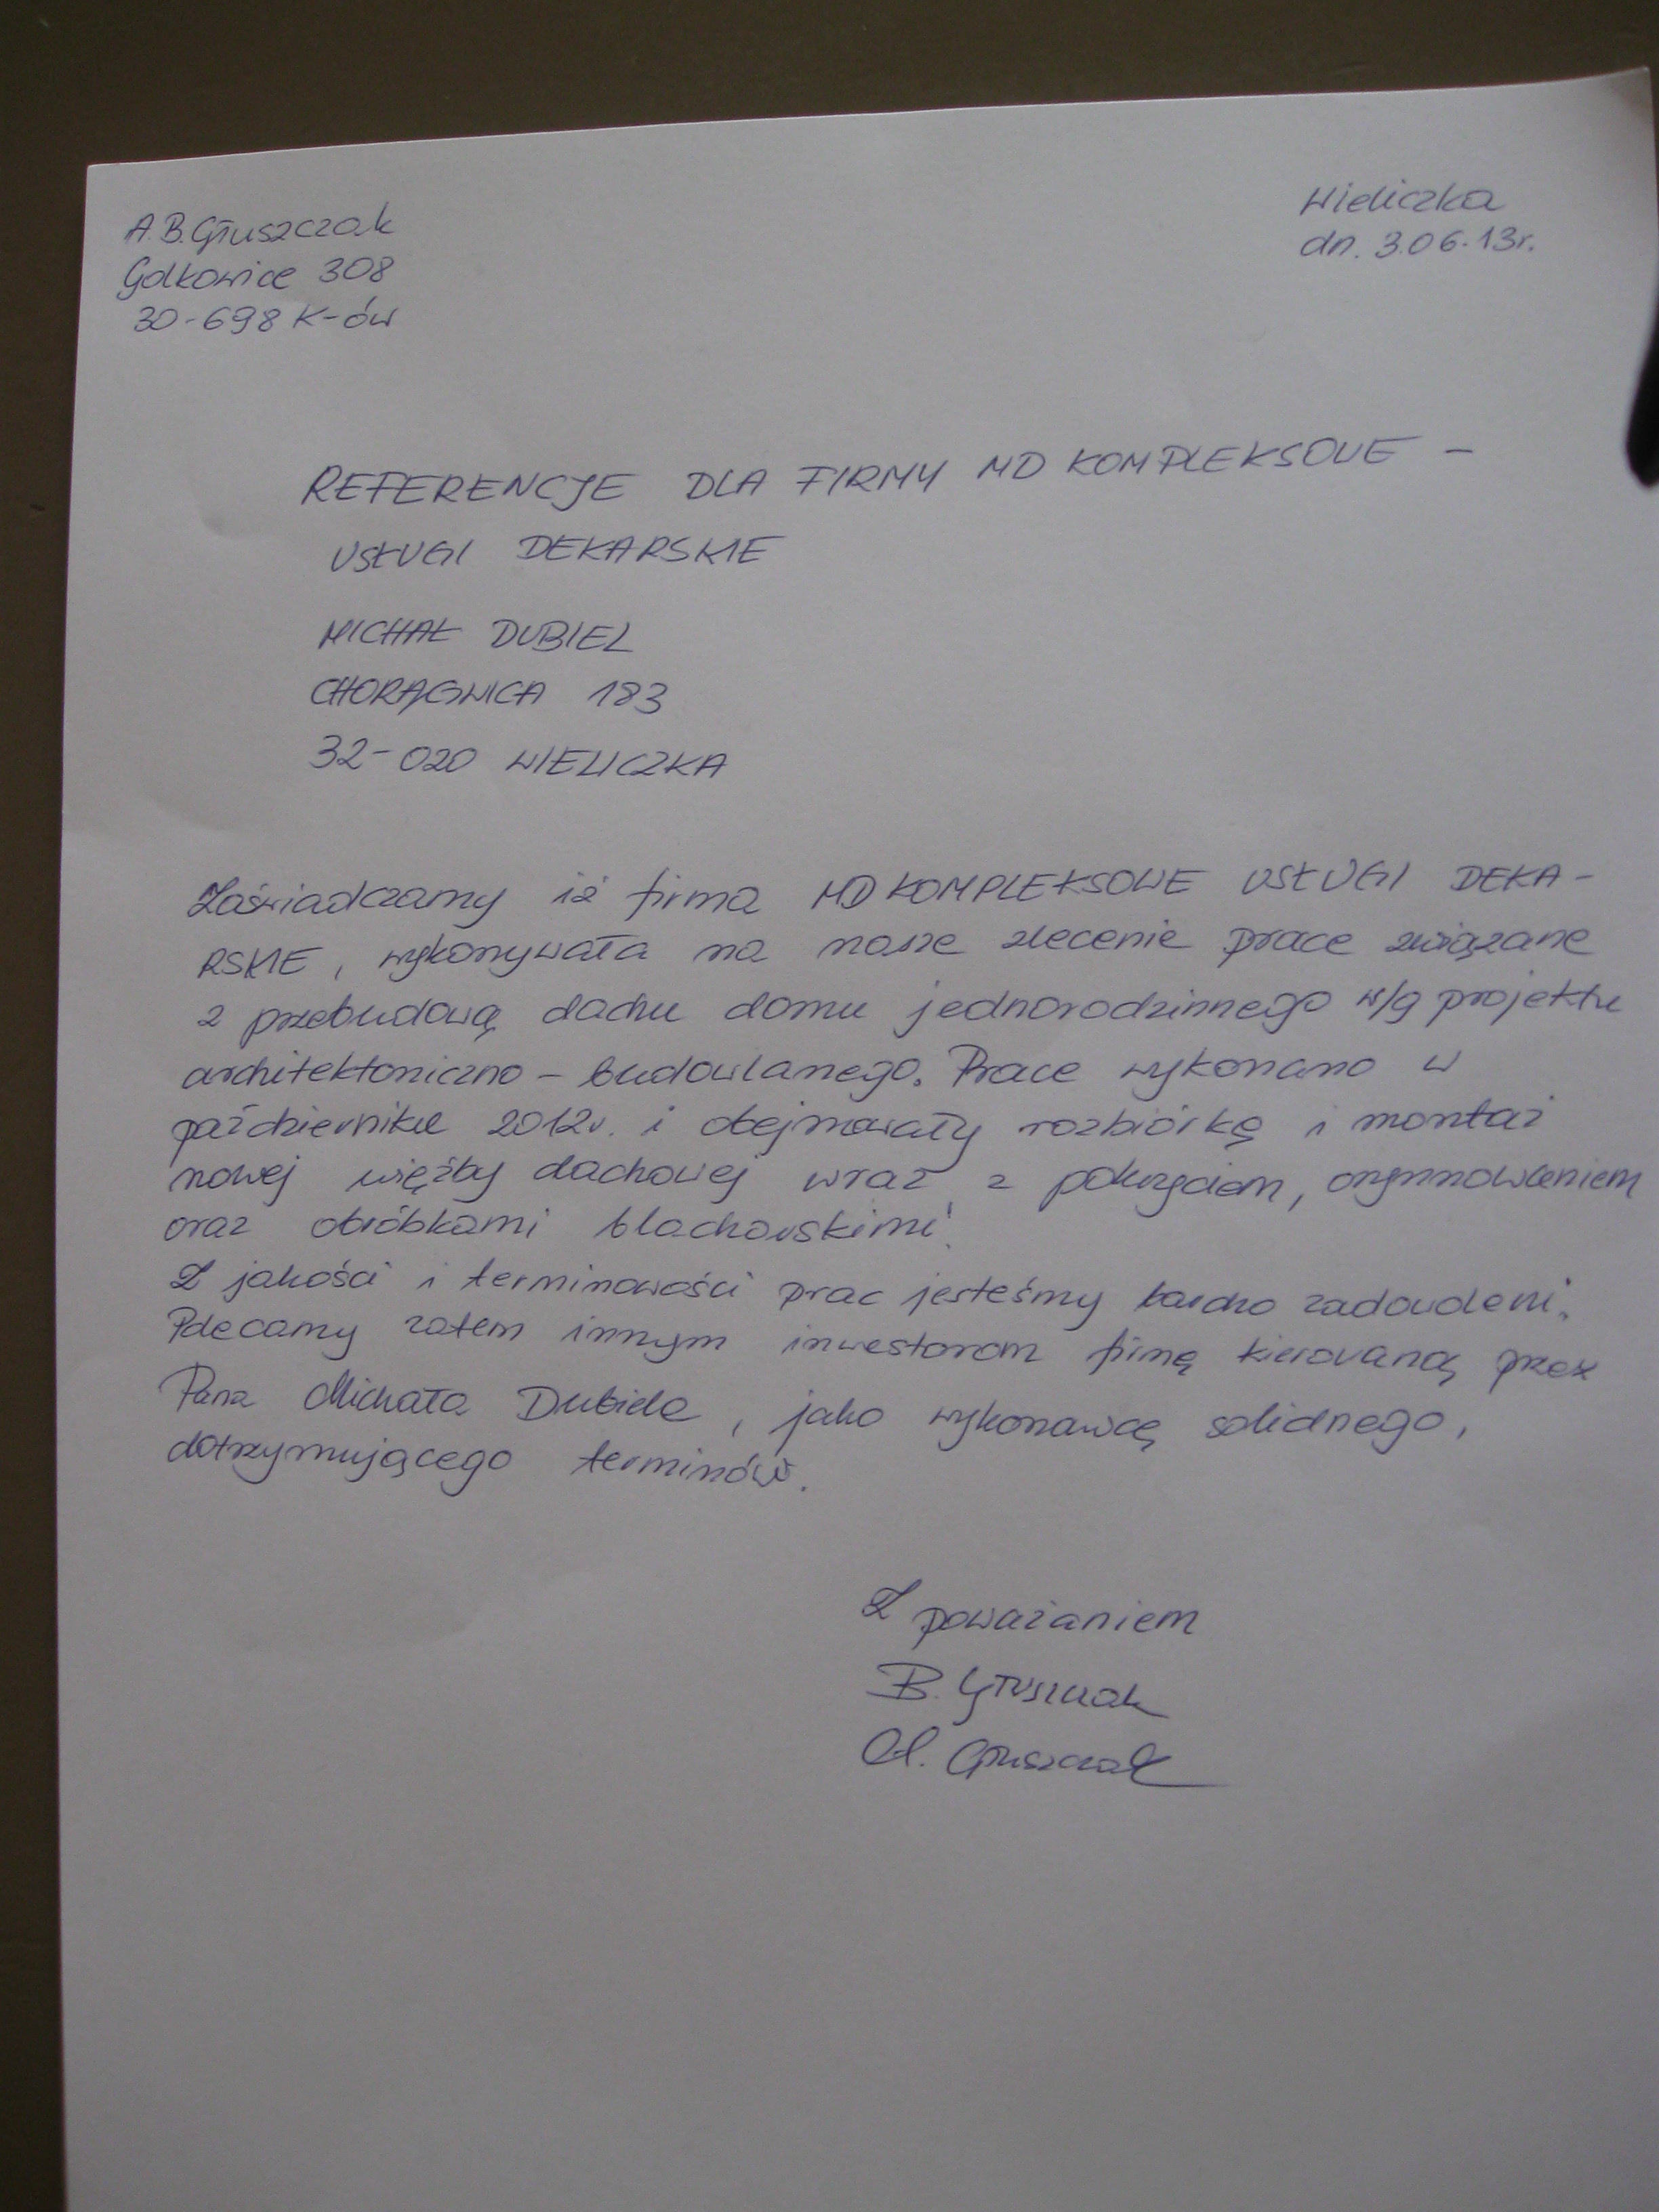 A.B. Głuszczak
Golkowice 308
30-698 K-ów
Wieliczka
dn. 3.06.13r.
REFERENCJE DLA FIRMY MD KOMPLEKSOWE -
USŁUGI DEKARSKIE
MICHAŁ DUBIEL
CHORĄGWICA 183
32-020 WIELICZKA
Zaświadczamy iż firma MD KOMPLEKSOWE USŁUGI DEKA-
RSKIE, wykonywała na nasze zlecenie prace związane
z przebudową dachu domu jednorodzinnego w/g projektu
architektoniczno - budowlanego. Prace wykonano w
październiku 2012r. i obejmowały rozbiórkę i montaż
nowej więźby dachowej wraz z pokryciem, orynnowaniem
oraz obróbkami blacharskimi.
Z jakości i terminowości prac jesteśmy bardzo zadowoleni.
Polecamy zatem innym inwestorom firmę kierowaną przez
Pana Michała Dubiela, jako wykonawcę solidnego,
dotrzymującego terminów.
Z poważaniem
B. Głuszczak
A. Głuszczak